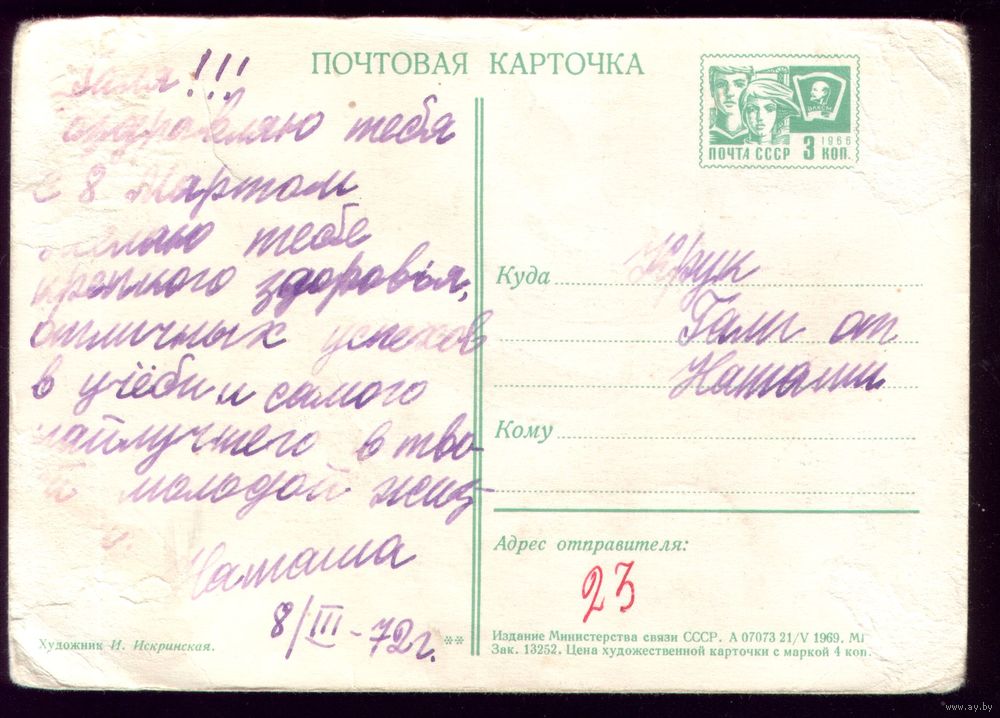 Галя!!!
Поздравляю тебя
с 8 Мартом
желаю тебе
крепкого здоровья,
отличных успехов
в учёби и самого
найлучшего в тво-
ей молодой жиз-
и.
Наташа
8/III-72г.
Художник И. Искринская.
ПОЧТОВАЯ КАРТОЧКА
ВЛКСМ
1966
ПОЧТА СССР 3 КОП.
Куда
Гали от
Наташи
Кому
Адрес отправителя:
23
** Издание Министерства связи СССР. А 07073 21/V 1969. МГ
Зак. 13252. Цена художественной карточки с маркой 4 коп.
www.ay.by